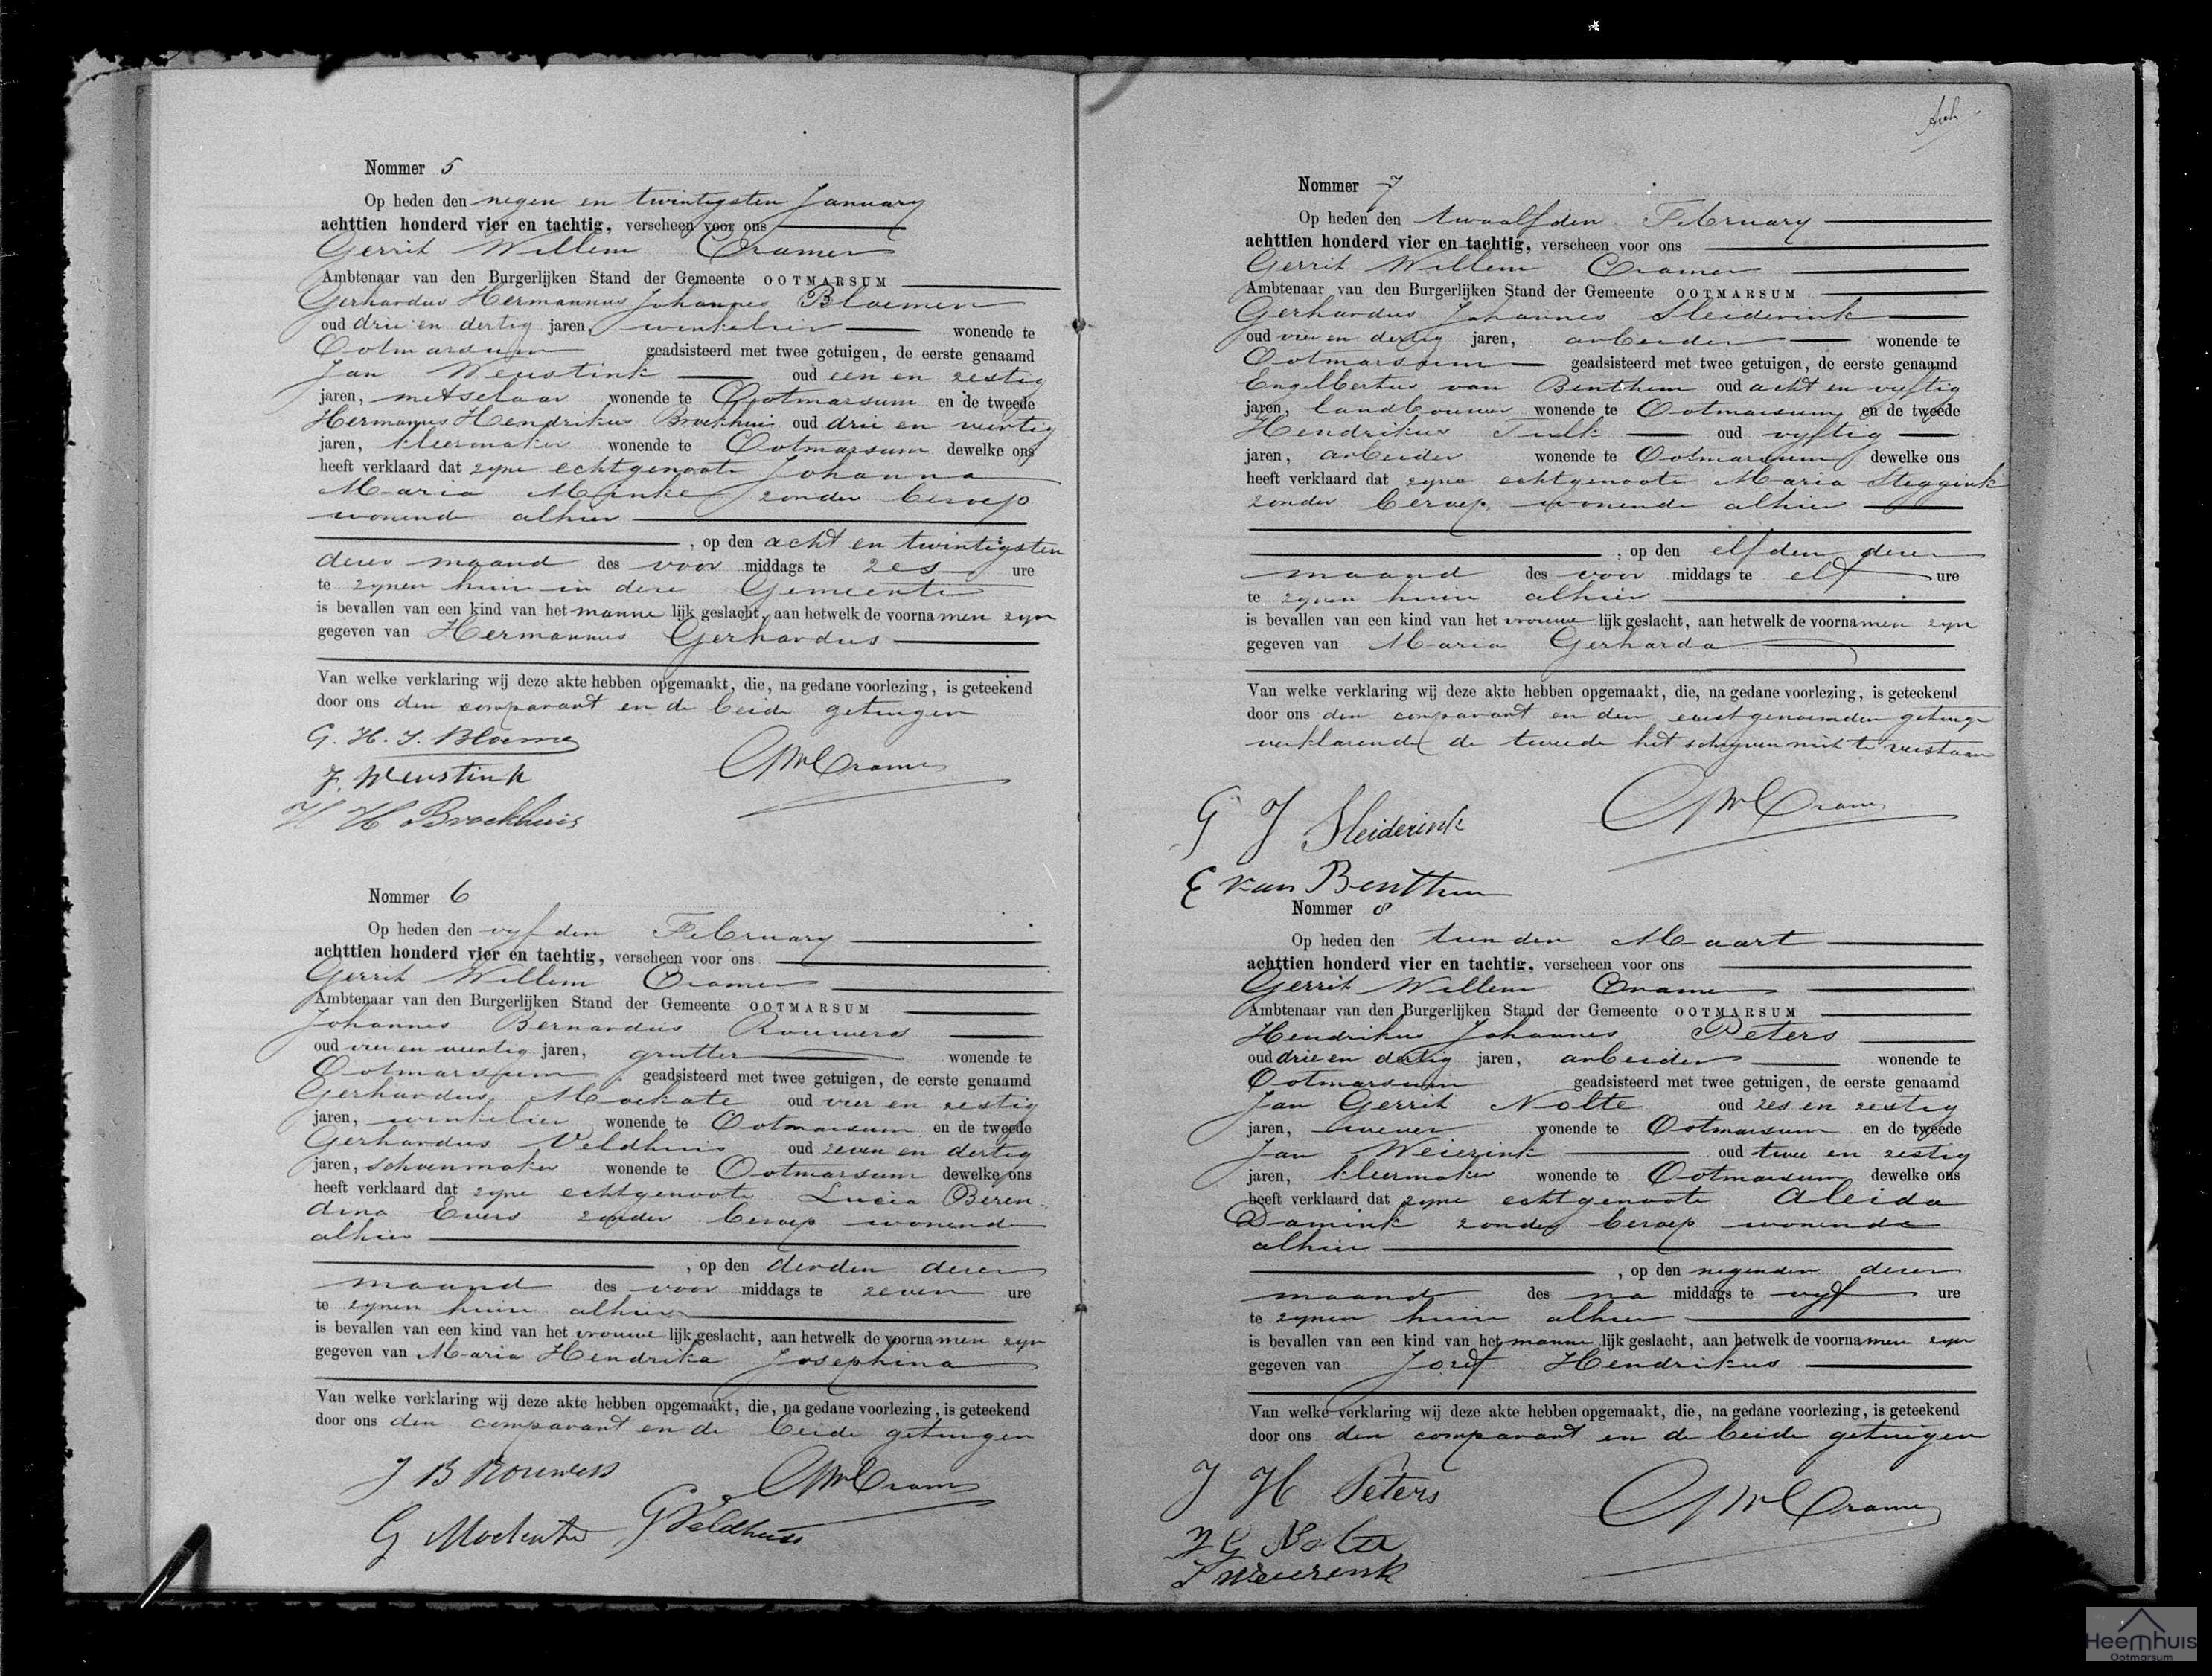 Nommer 5
Op heden den negen en twintigsten January
achttien honderd vier en tachtig, verscheen voor ons
Gerrit Willem Cramer
Ambtenaar van den Burgerlijken Stand der Gemeente OOTMARSUM
Gerhardus Hermannus Johannes Bloemen
oud drie en dertig jaren, winkelier wonende te
Ootmarsum geadsisteerd met twee getuigen, de eerste genaamd
Jan Weustink oud een en zestig
jaren, metselaar wonende te Ootmarsum en de tweede
Hermannus Hendrikus Broekhuis oud drie en veertig
jaren, kleermaker wonende te Ootmarsum dewelke ons
heeft verklaard dat zyne echtgenoote Johanna
Maria zonder beroep
wonende alhier
, op den acht en twintigsten
dezer maand des voor middags te zes ure
te zynen huize in deze Gemeente
is bevallen van een kind van het manne lijk geslacht, aan hetwelk de voornamen zyn
gegeven van Hermannus Gerhardus
Van welke verklaring wij deze akte hebben opgemaakt, die, na gedane voorlezing, is geteekend
door ons den comparant en de beide getuigen
G. H. J. Bloemen
J. Weustink GWCramer
H H Broekhuis
Nommer 6
Op heden den vyfden February
achttien honderd vier en tachtig, verscheen voor ons
Gerrit Willem Cramer
Ambtenaar van den Burgerlijken Stand der Gemeente OOTMARSUM
Johannes Bernardus Rouwers
oud vier en veertig jaren, grutter wonende te
Ootmarsum geadsisteerd met twee getuigen, de eerste genaamd
Gerhardus Moekate oud vier en zestig
jaren, winkelier wonende te Ootmarsum en de tweede
Gerhardus Veldhuis oud zeven en dertig
jaren, schoenmaker wonende te Ootmarsum dewelke ons
heeft verklaard dat zyne echtgenoote Lucia Beren-
dina Evers zonder beroep wonende
alhier
, op den derden dezer
maand des voor middags te zeven ure
te zynen huize alhier
is bevallen van een kind van het vrouwe lijk geslacht, aan hetwelk de voornamen zyn
gegeven van Maria Hendrika Josephina
Van welke verklaring wij deze akte hebben opgemaakt, die, na gedane voorlezing, is geteekend
door ons den comparant en de beide getuigen
J B Rouwers GWCramer
G Moekate G Veldhuis
Nommer 7
Op heden den twaalfden February
achttien honderd vier en tachtig, verscheen voor ons
Gerrit Willem Cramer
Ambtenaar van den Burgerlijken Stand der Gemeente OOTMARSUM
Gerhardus Johannes Sleiderink
oud vier en dertig jaren, arbeider wonende te
Ootmarsum geadsisteerd met twee getuigen, de eerste genaamd
Engelbertus van Benthem oud acht en vyftig
jaren, landbouwer wonende te Ootmarsum en de tweede
Hendrikus oud vyftig
jaren, arbeider wonende te Ootmarsum dewelke ons
heeft verklaard dat zyne echtgenoote Maria Steggink
zonder beroep, wonende alhier
, op den elfden dezer
maand des voor middags te elf ure
te zynen huize alhier
is bevallen van een kind van het vrouwe lijk geslacht, aan hetwelk de voornamen zyn
gegeven van Maria Gerharda
Van welke verklaring wij deze akte hebben opgemaakt, die, na gedane voorlezing, is geteekend
door ons den comparant en den eerstgenoemden getuige
verklarende de tweede het schryven niet te verstaan
G J Sleiderink GWCramer
E van Benthem
Nommer 8
Op heden den tienden Maart
achttien honderd vier en tachtig, verscheen voor ons
Gerrit Willem Cramer
Ambtenaar van den Burgerlijken Stand der Gemeente OOTMARSUM
Hendrikus Johannes Peters
oud drie en dertig jaren, arbeider wonende te
Ootmarsum geadsisteerd met twee getuigen, de eerste genaamd
Jan Gerrit Nolte oud zes en zestig
jaren, wever wonende te Ootmarsum en de tweede
Jan Weierink oud twee en zestig
jaren, kleermaker wonende te Ootmarsum dewelke ons
heeft verklaard dat zyne echtgenoote Aleida
Damink zonder beroep wonende
alhier
, op den negenden dezer
maand des na middags te vyf ure
te zynen huize alhier
is bevallen van een kind van het manne lijk geslacht, aan hetwelk de voornamen zyn
gegeven van Jozef Hendrikus
Van welke verklaring wij deze akte hebben opgemaakt, die, na gedane voorlezing, is geteekend
door ons den comparant en de beide getuigen
J H Peters GWCramer
J G Nolte
J Weierink
Heemhuis
Ootmarsum